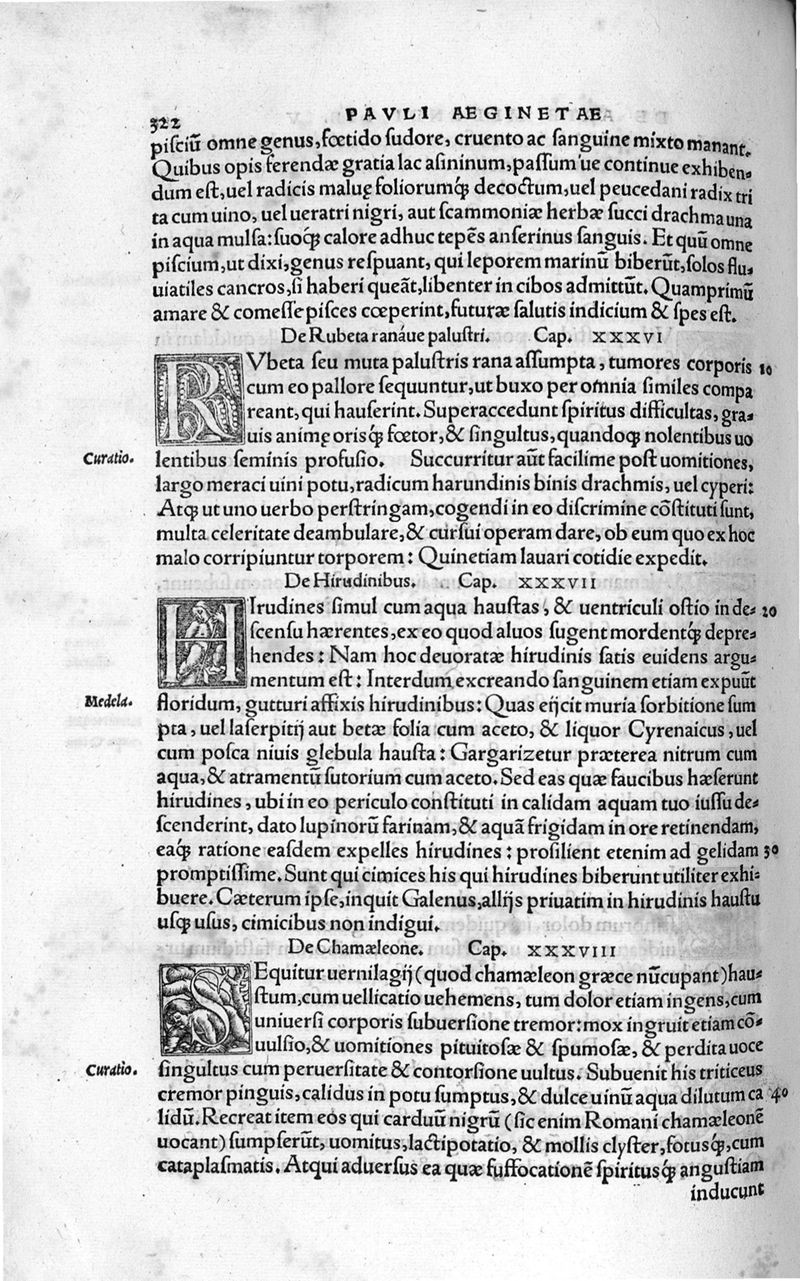 322
PAVLI AEGINETAE
pisciũ omne genus, fœtido sudore, cruento ac sanguine mixto manant.
Quibus opis ferendæ gratia lac asininum, passum'ue continue exhiben-
dum est, uel radicis maluę foliorumq́; decoctum, uel peucedani radix tri
ta cum uino, uel ueratri nigri, aut scammoniæ herbæ succi drachma una
in aqua mulsa: suoq́; calore adhuc tepẽs anserinus sanguis. Et quũ omne
piscium, ut dixi, genus respuant, qui leporem marinũ biberũt, solos flu-
uiatiles cancros, si haberi queãt, libenter in cibos admittũt. Quamprimũ
amare & comesse pisces cœperint, futuræ salutis indicium & spes est.
De Rubeta ranáue palustri. Cap. XXXVI
RVbeta seu muta palustris rana assumpta, tumores corporis 10
cum eo pallore sequuntur, ut buxo per omnia similes compa
reant, qui hauserint. Superaccedunt spiritus difficultas, gra-
uis animę orisq́; fœtor, & singultus, quandoq; nolentibus uo
Curatio. lentibus seminis profusio. Succurritur aũt facilime post uomitiones,
largo meraci uini potu, radicum harundinis binis drachmis, uel cyperi:
Atq; ut uno uerbo perstringam, cogendi in eo discrimine cõstituti sunt,
multa celeritate deambulare, & cursui operam dare, ob eum quo ex hoc
malo corripiuntur torporem: Quinetiam lauari cotidie expedit.
De Hirudinibus. Cap. XXXVII
HIrudines simul cum aqua haustas, & uentriculi ostio in de- 20
scensu hærentes, ex eo quod aluos sugent mordentq́; depre-
hendes: Nam hoc deuoratæ hirudinis satis euidens argu-
mentum est: Interdum excreando sanguinem etiam expuũt
Medela. floridum, gutturi affixis hirudinibus: Quas eijcit muria sorbitione sum
pta, uel laserpitij aut betæ folia cum aceto, & liquor Cyrenaicus, uel
cum posca niuis glebula hausta: Gargarizetur præterea nitrum cum
aqua, & atramentũ sutorium cum aceto. Sed eas quæ faucibus hæserunt
hirudines, ubi in eo periculo constituti in calidam aquam tuo iussu de-
scenderint, dato lupinorũ farinam, & aquã frigidam in ore retinendam,
eaq́; ratione easdem expelles hirudines: prosilient etenim ad gelidam 30
promptissime. Sunt qui cimices his qui hirudines biberunt utiliter exhi-
buere. Cæterum ipse, inquit Galenus, allijs priuatim in hirudinis haustu
usq; usus, cimicibus non indigui.
De Chamæleone. Cap. XXXVIII
SEquitur uernilagij (quod chamæleon græce nũcupant) hau-
stum, cum uellicatio uehemens, tum dolor etiam ingens, cum
uniuersi corporis subuersione tremor: mox ingruit etiam cõ-
uulsio, & uomitiones pituitosæ & spumosæ, & perdita uoce
Curatio. singultus cum peruersitate & contorsione uultus. Subuenit his triticeus
cremor pinguis, calidus in potu sumptus, & dulce uinũ aqua dilutum ca 40
lidũ. Recreat item eos qui carduũ nigrũ (sic enim Romani chamæleonẽ
uocant) sumpserũt, uomitus, lactipotatio, & mollis clyster, fotusq́;, cum
cataplasmatis. Atqui aduersus ea quæ suffocationẽ spiritusq́; angustiam
inducunt